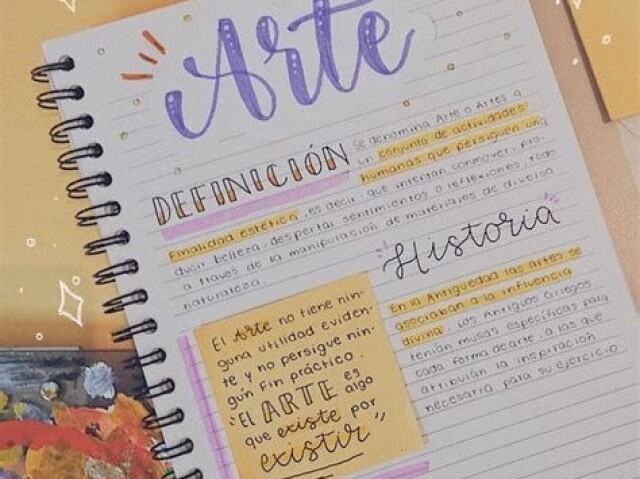 Arte
DEFINICIÓN
Se denomina Arte o Artes a
un conjunto de actividades
humanas que persiguen una
finalidad estética, es decir, que intentan conmover, pro-
ducir belleza, despertar sentimientos o reflexiones, todo
a través de la manipulación de materiales de diversa
naturaleza.
Historia
En la Antigüedad las artes se
asociaban a la influencia
divina. Los Antigos Griegos
tenían musas específicas para
cada forma de arte a las que
atribuían la inspiración
necesaria para su ejercicio
El Arte no tiene nin-
guna utilidad eviden-
te y no persigue nin-
gún fin práctico.
"El ARTE es
algo
que existe por
existir"